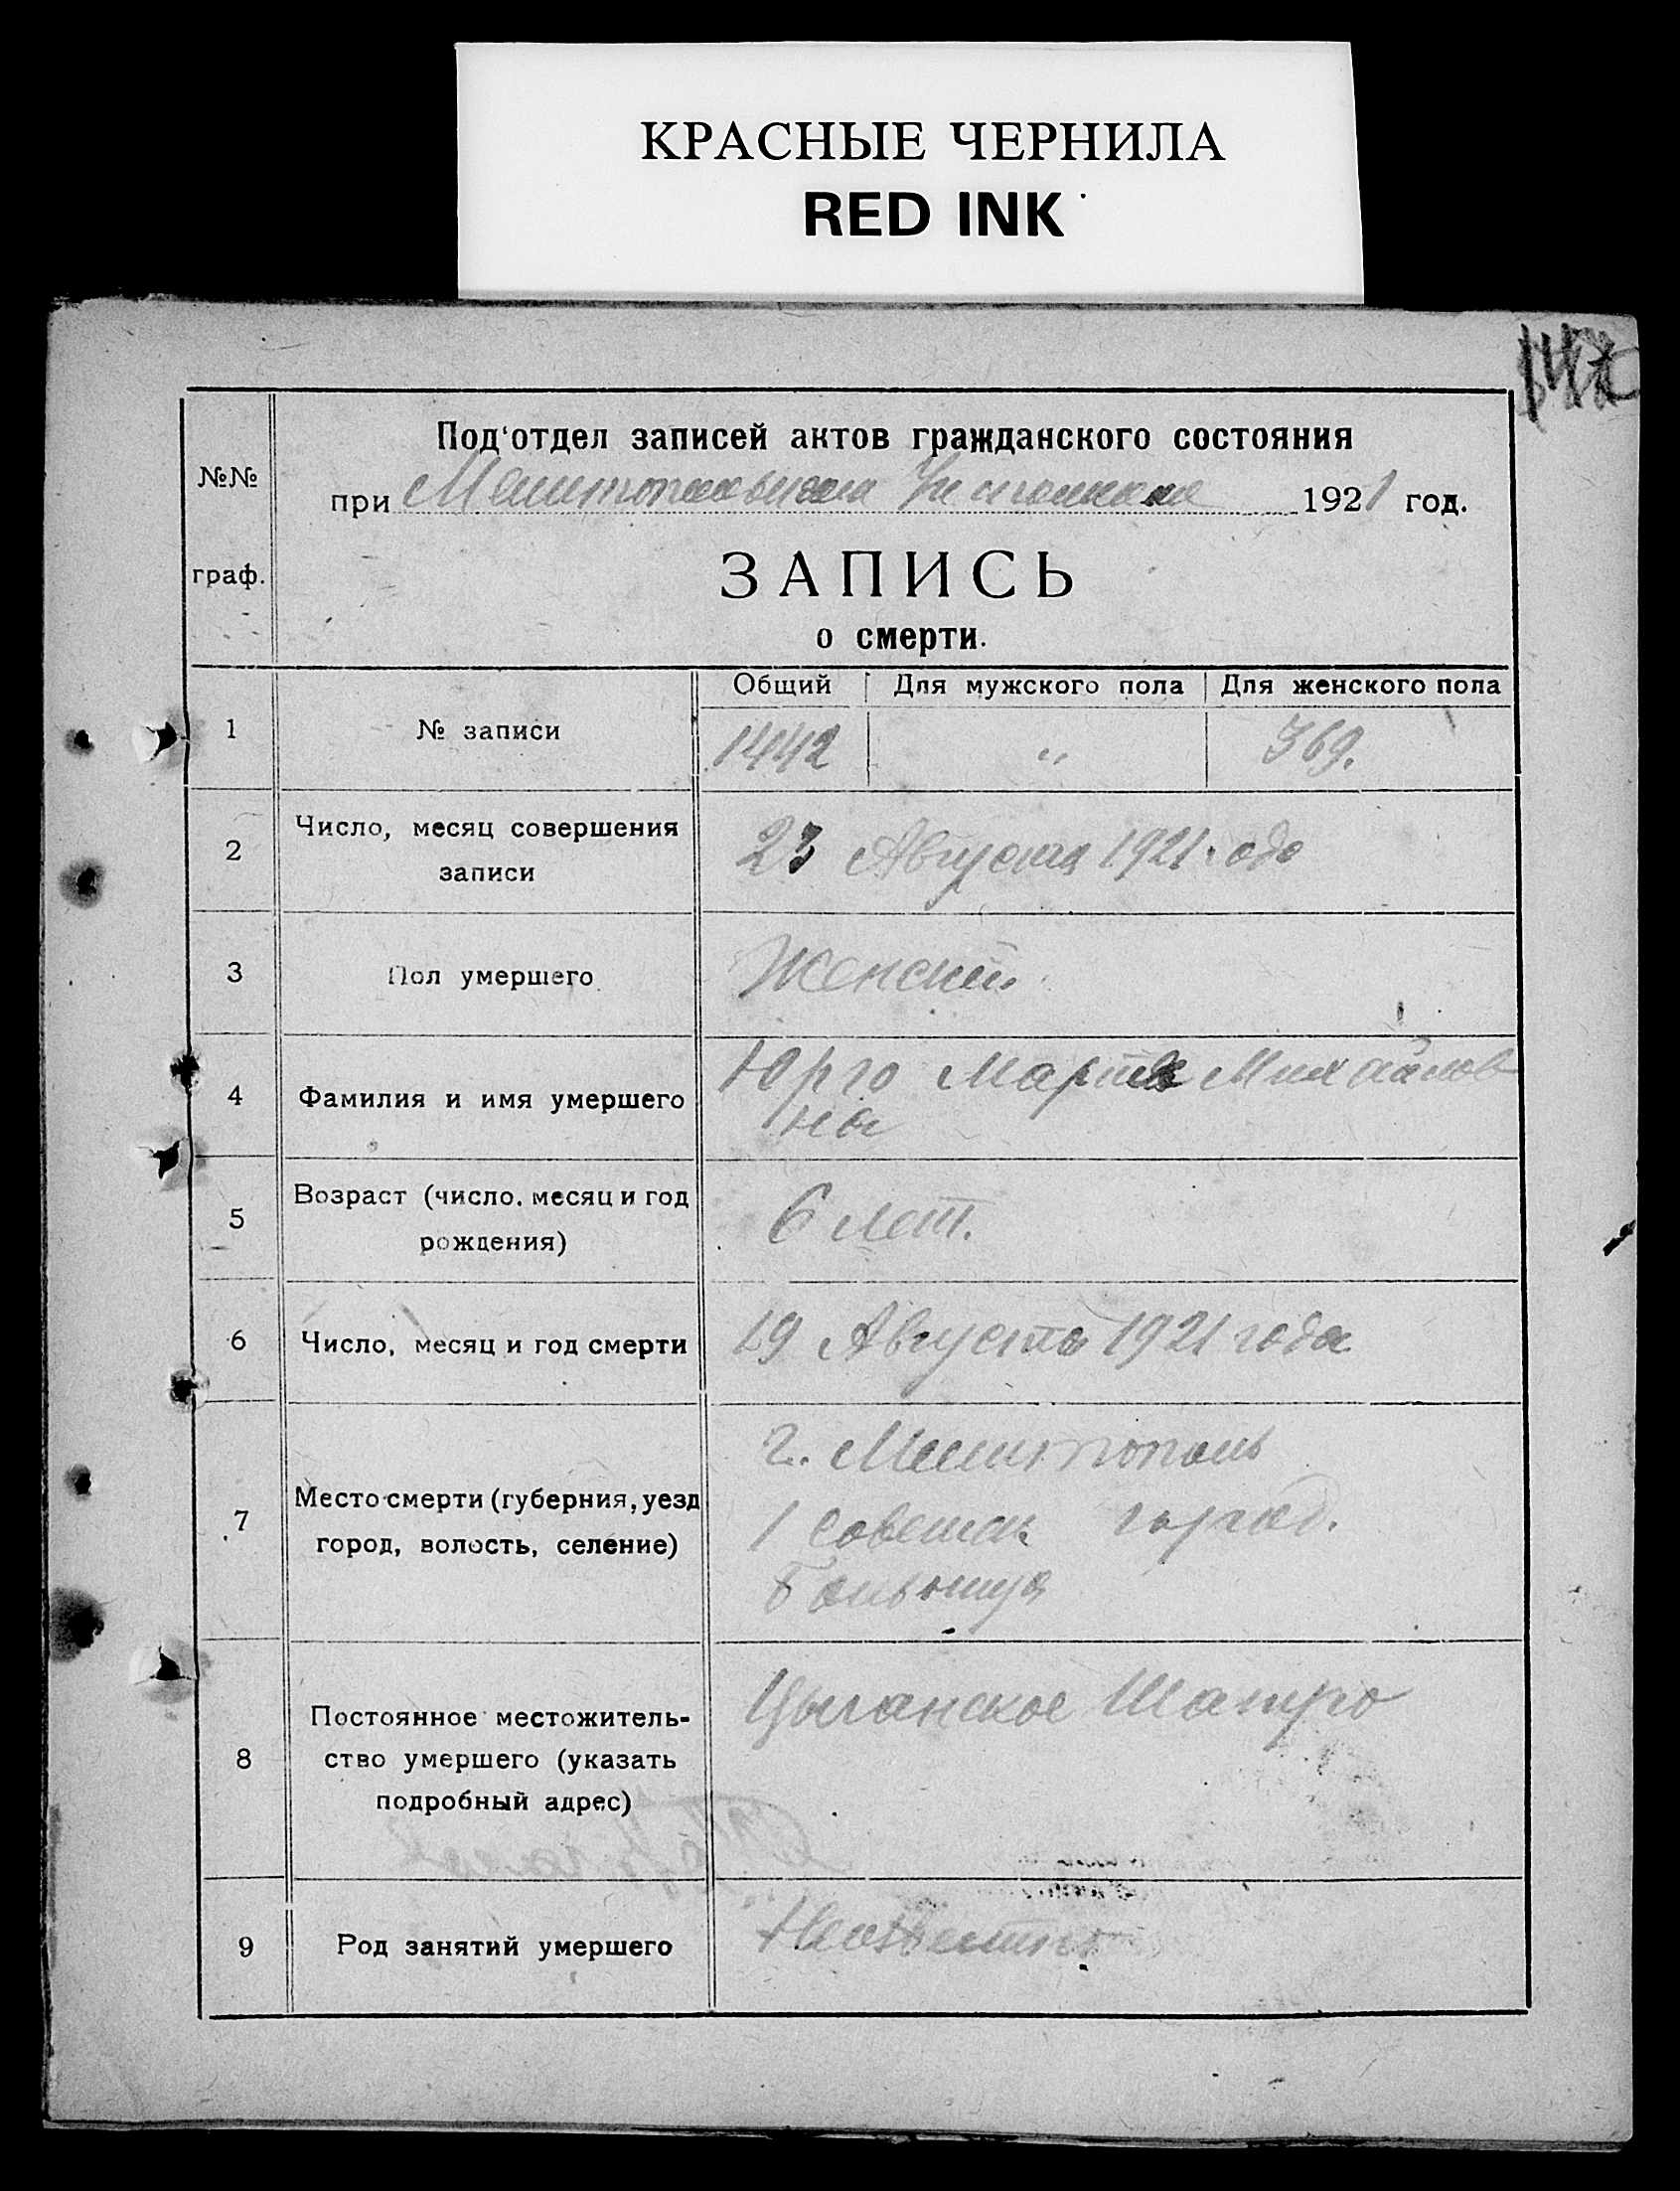 КРАСНЫЕ ЧЕРНИЛА
RED INK
№№
граф.
Под'отдел записей актов гражданского состояния
при Мелитопольском 1921 год.
ЗАПИСЬ
о смерти.
Общий Для мужского пола Для женского пола
1 № записи 1442 〃 369.
2 Число, месяц совершения
записи
23 Августа 1921 года
3 Пол умершего Женский
4 Фамилия и имя умершего
Юрго Мария Михайлов
на
5 Возраст (число, месяц и год
рождения)
6 лет.
6 Число, месяц и год смерти 19 Августа 1921 года
7 Место смерти (губерния, уезд
город, волость, селение)
г. Мелитополь
1 Советск город.
Больница
8 Постоянное местожитель-
ство умершего (указать
подробный адрес)
Цыганское Шатро
9 Род занятий умершего